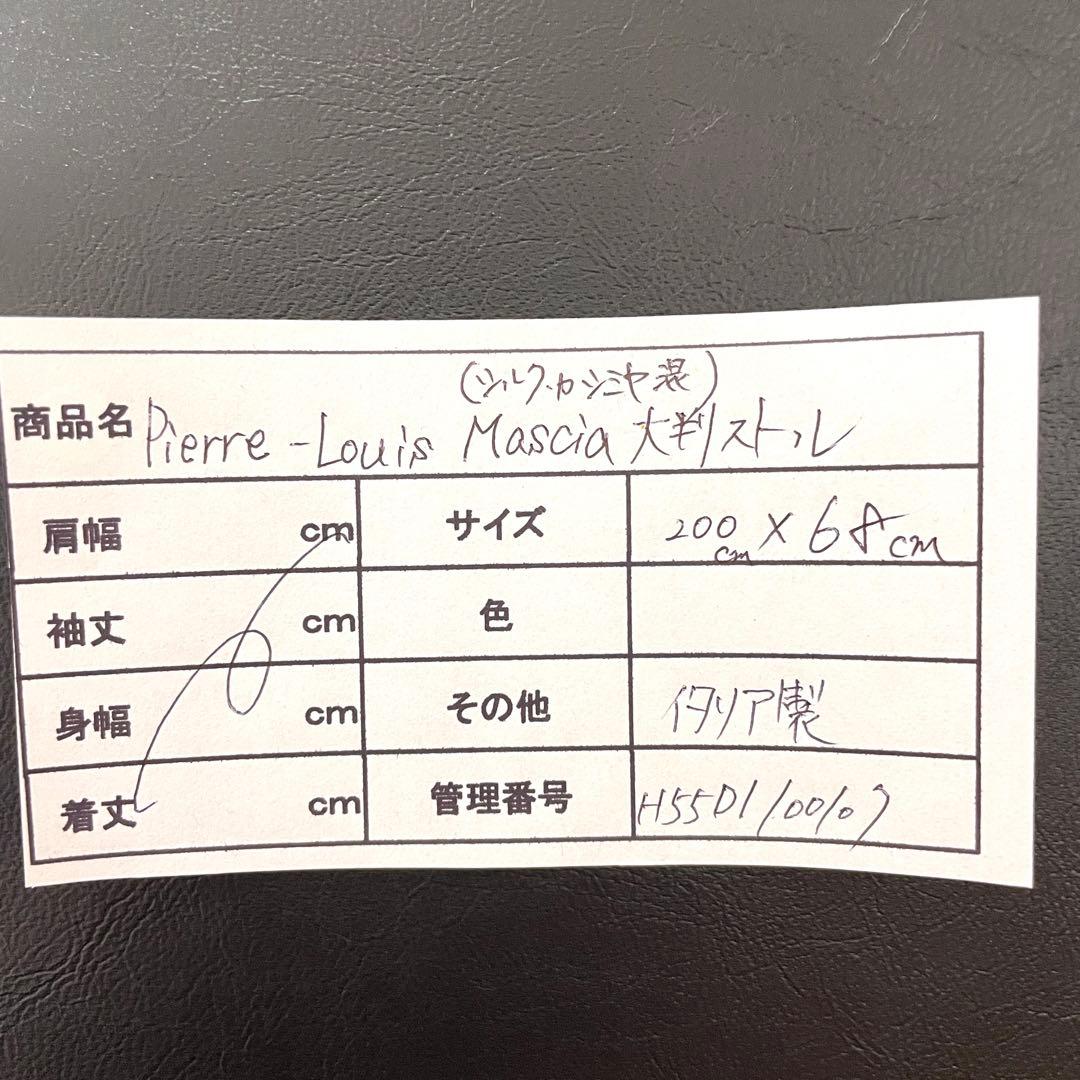 (シルク、カシミヤ混)
商品名 Pierre-Louis Mascia 大判ストール
肩幅 cm サイズ 200cm × 68cm
袖丈 cm 色
身幅 cm その他 イタリア製
着丈 cm 管理番号